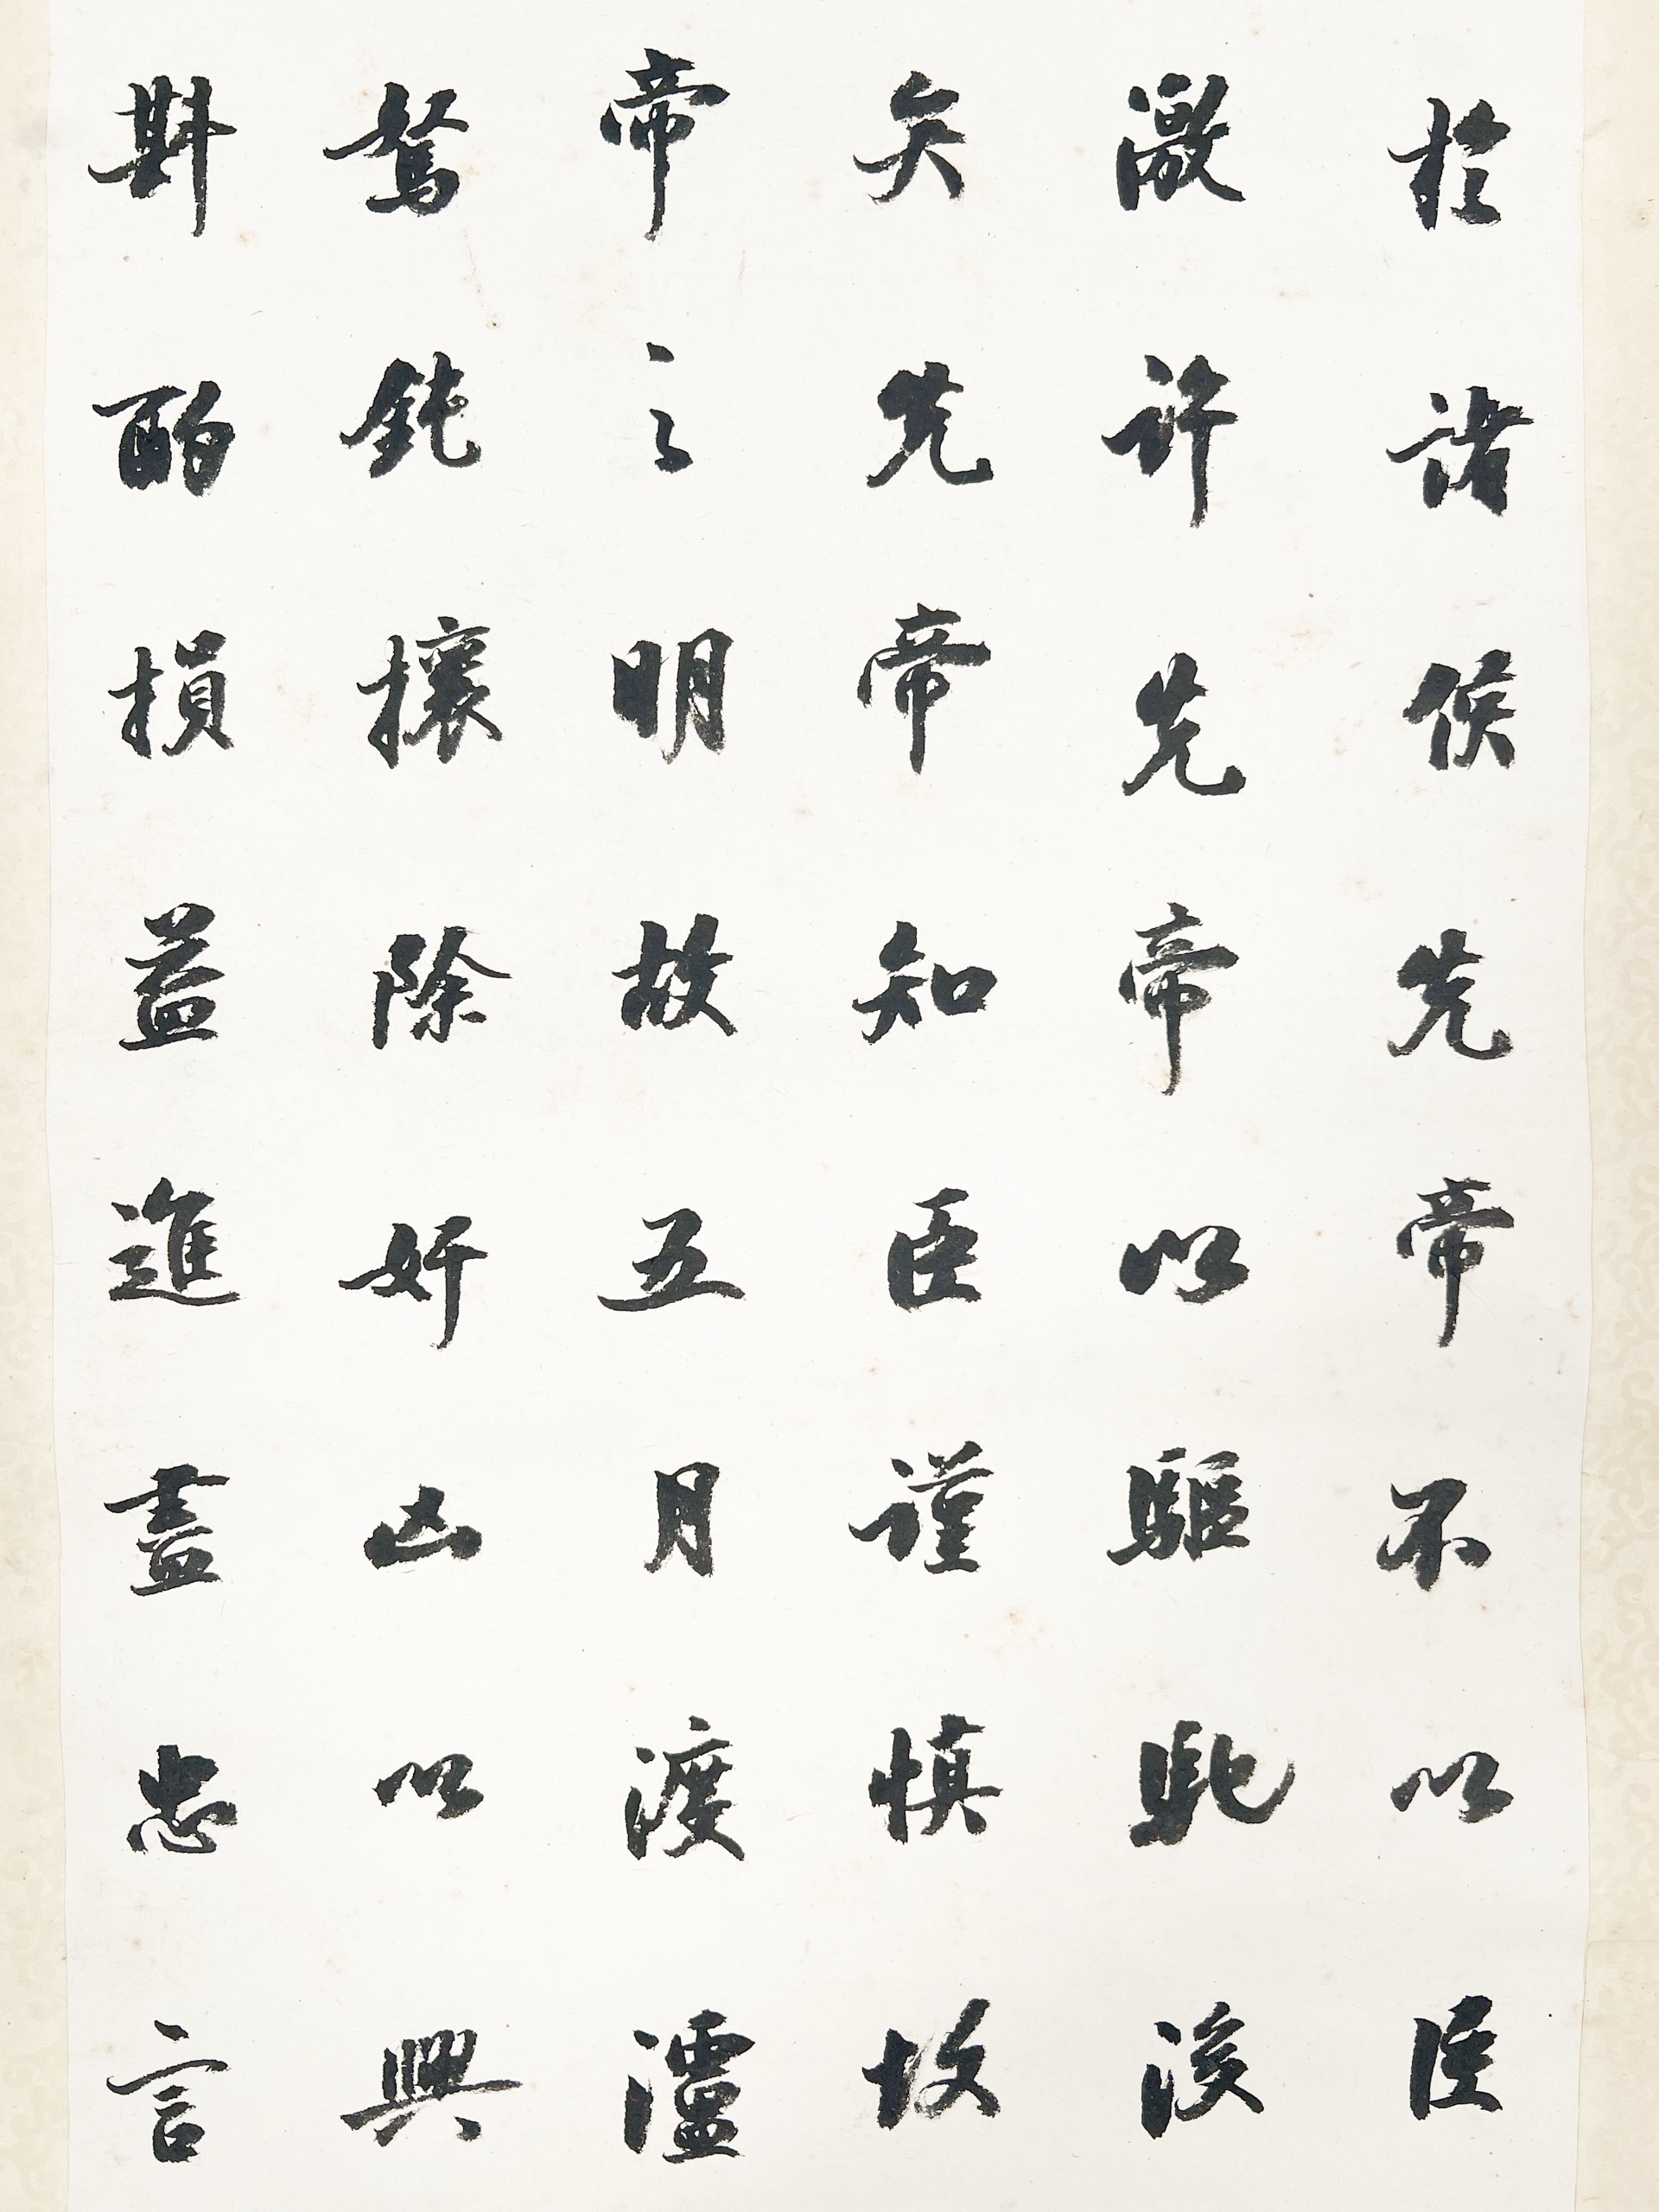 於諸侯先帝不以臣
激許先帝以驅馳後
矣先帝知臣謹慎故
帝之明故五月渡瀘
駑鈍攘除奸凶以興
斟酌損益進盡忠言